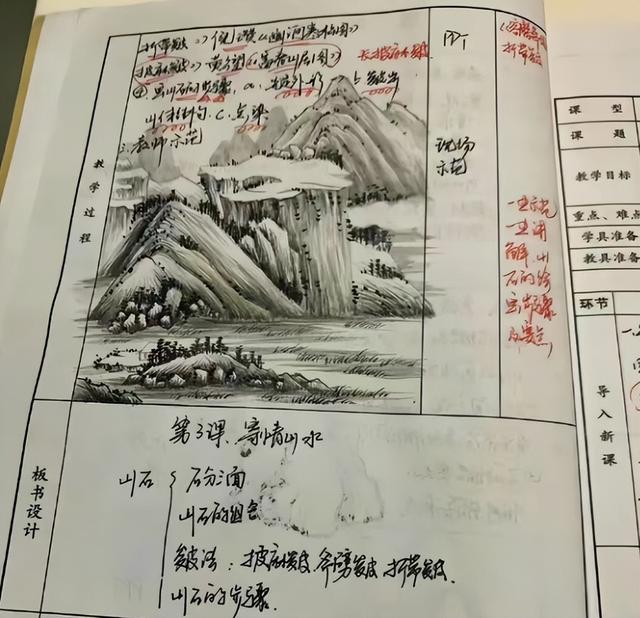 折带皴→倪瓒《幽涧寒松图》
披麻皴→黄公望《富春山居图》 长披麻皴
④画山石的步骤, a.先定外形 b.皴出
山体结构, c.点染
三.教师示范
教学过程
PPT
现场
示范
折带皴
一边示范
一边讲
解、山
石的绘
画步骤
及要点
板书设计
第3课、寄情山水
山石
石分三面
山石的组合
皴法：披麻皴,斧劈皴,折带皴.
山石的步骤.
课 型
课 题
教学目标
重点、难点
学具准备
教具准备
环节
导入新课